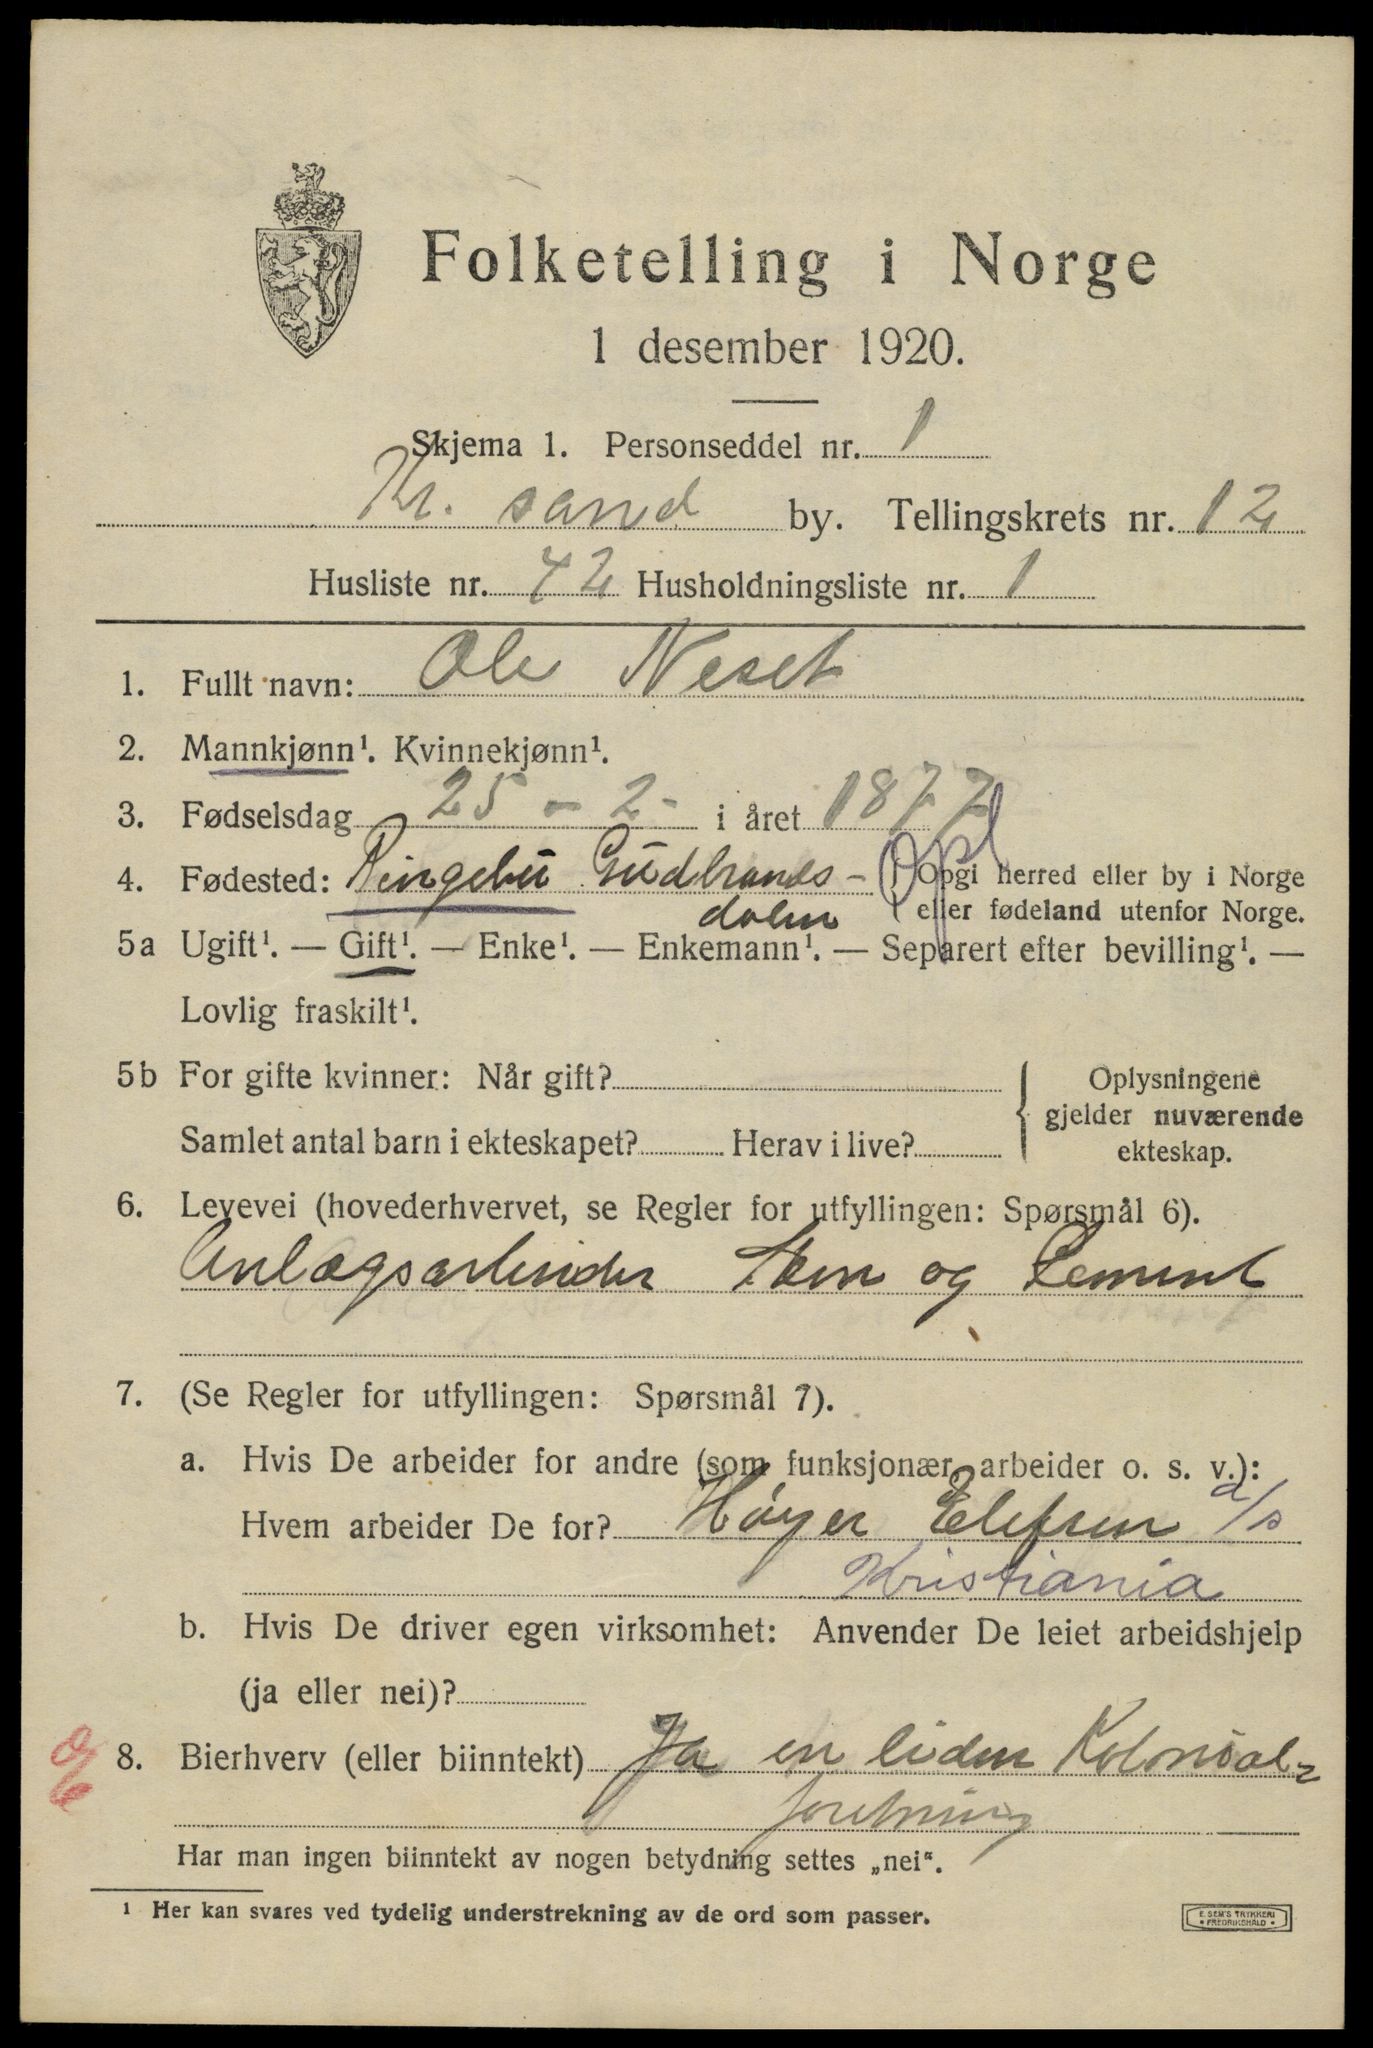 Folketelling i Norge
1 desember 1920.
Skjema 1. Personseddel nr. 1
Kr. sand by. Tellingskrets nr. 12
Husliste nr. 42 Husholdningsliste nr. 1
1. Fullt navn: Ole Neset
2. Mannkjønn¹. Kvinnekjønn¹.
3. Fødselsdag 25 - 2 - i året 1877
4. Fødested: Ringebu Gudbrands- Opgi herred eller by i Norge
dalen eller fødeland utenfor Norge.
Opl
5a Ugift¹. — Gift¹. — Enke¹. — Enkemann¹. — Separert efter bevilling¹. —
Lovlig fraskilt¹.
5b For gifte kvinner: Når gift? Oplysningene
gjelder nuværende
Samlet antal barn i ekteskapet? Herav i live? ekteskap.
6. Levevei (hovederhvervet, se Regler for utfyllingen: Spørsmål 6).
Anlægsarbeider Sten og Cement
7. (Se Regler for utfyllingen: Spørsmål 7).
a. Hvis De arbeider for andre (som funksjonær, arbeider o. s. v.):
Hvem arbeider De for? Høyer Elefsen a/s
Kristiania
b. Hvis De driver egen virksomhet: Anvender De leiet arbeidshjelp
(ja eller nei)?
8. Bierhverv (eller biinntekt) Ja en liden Kolonial=
foretning
Har man ingen biinntekt av nogen betydning settes „nei“.
¹ Her kan svares ved tydelig understrekning av de ord som passer.
E. SEM'S TRYKKERI
FREDRIKSHALD